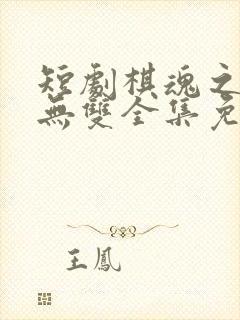 短劇棋魂之
無雙全集免
王鳳